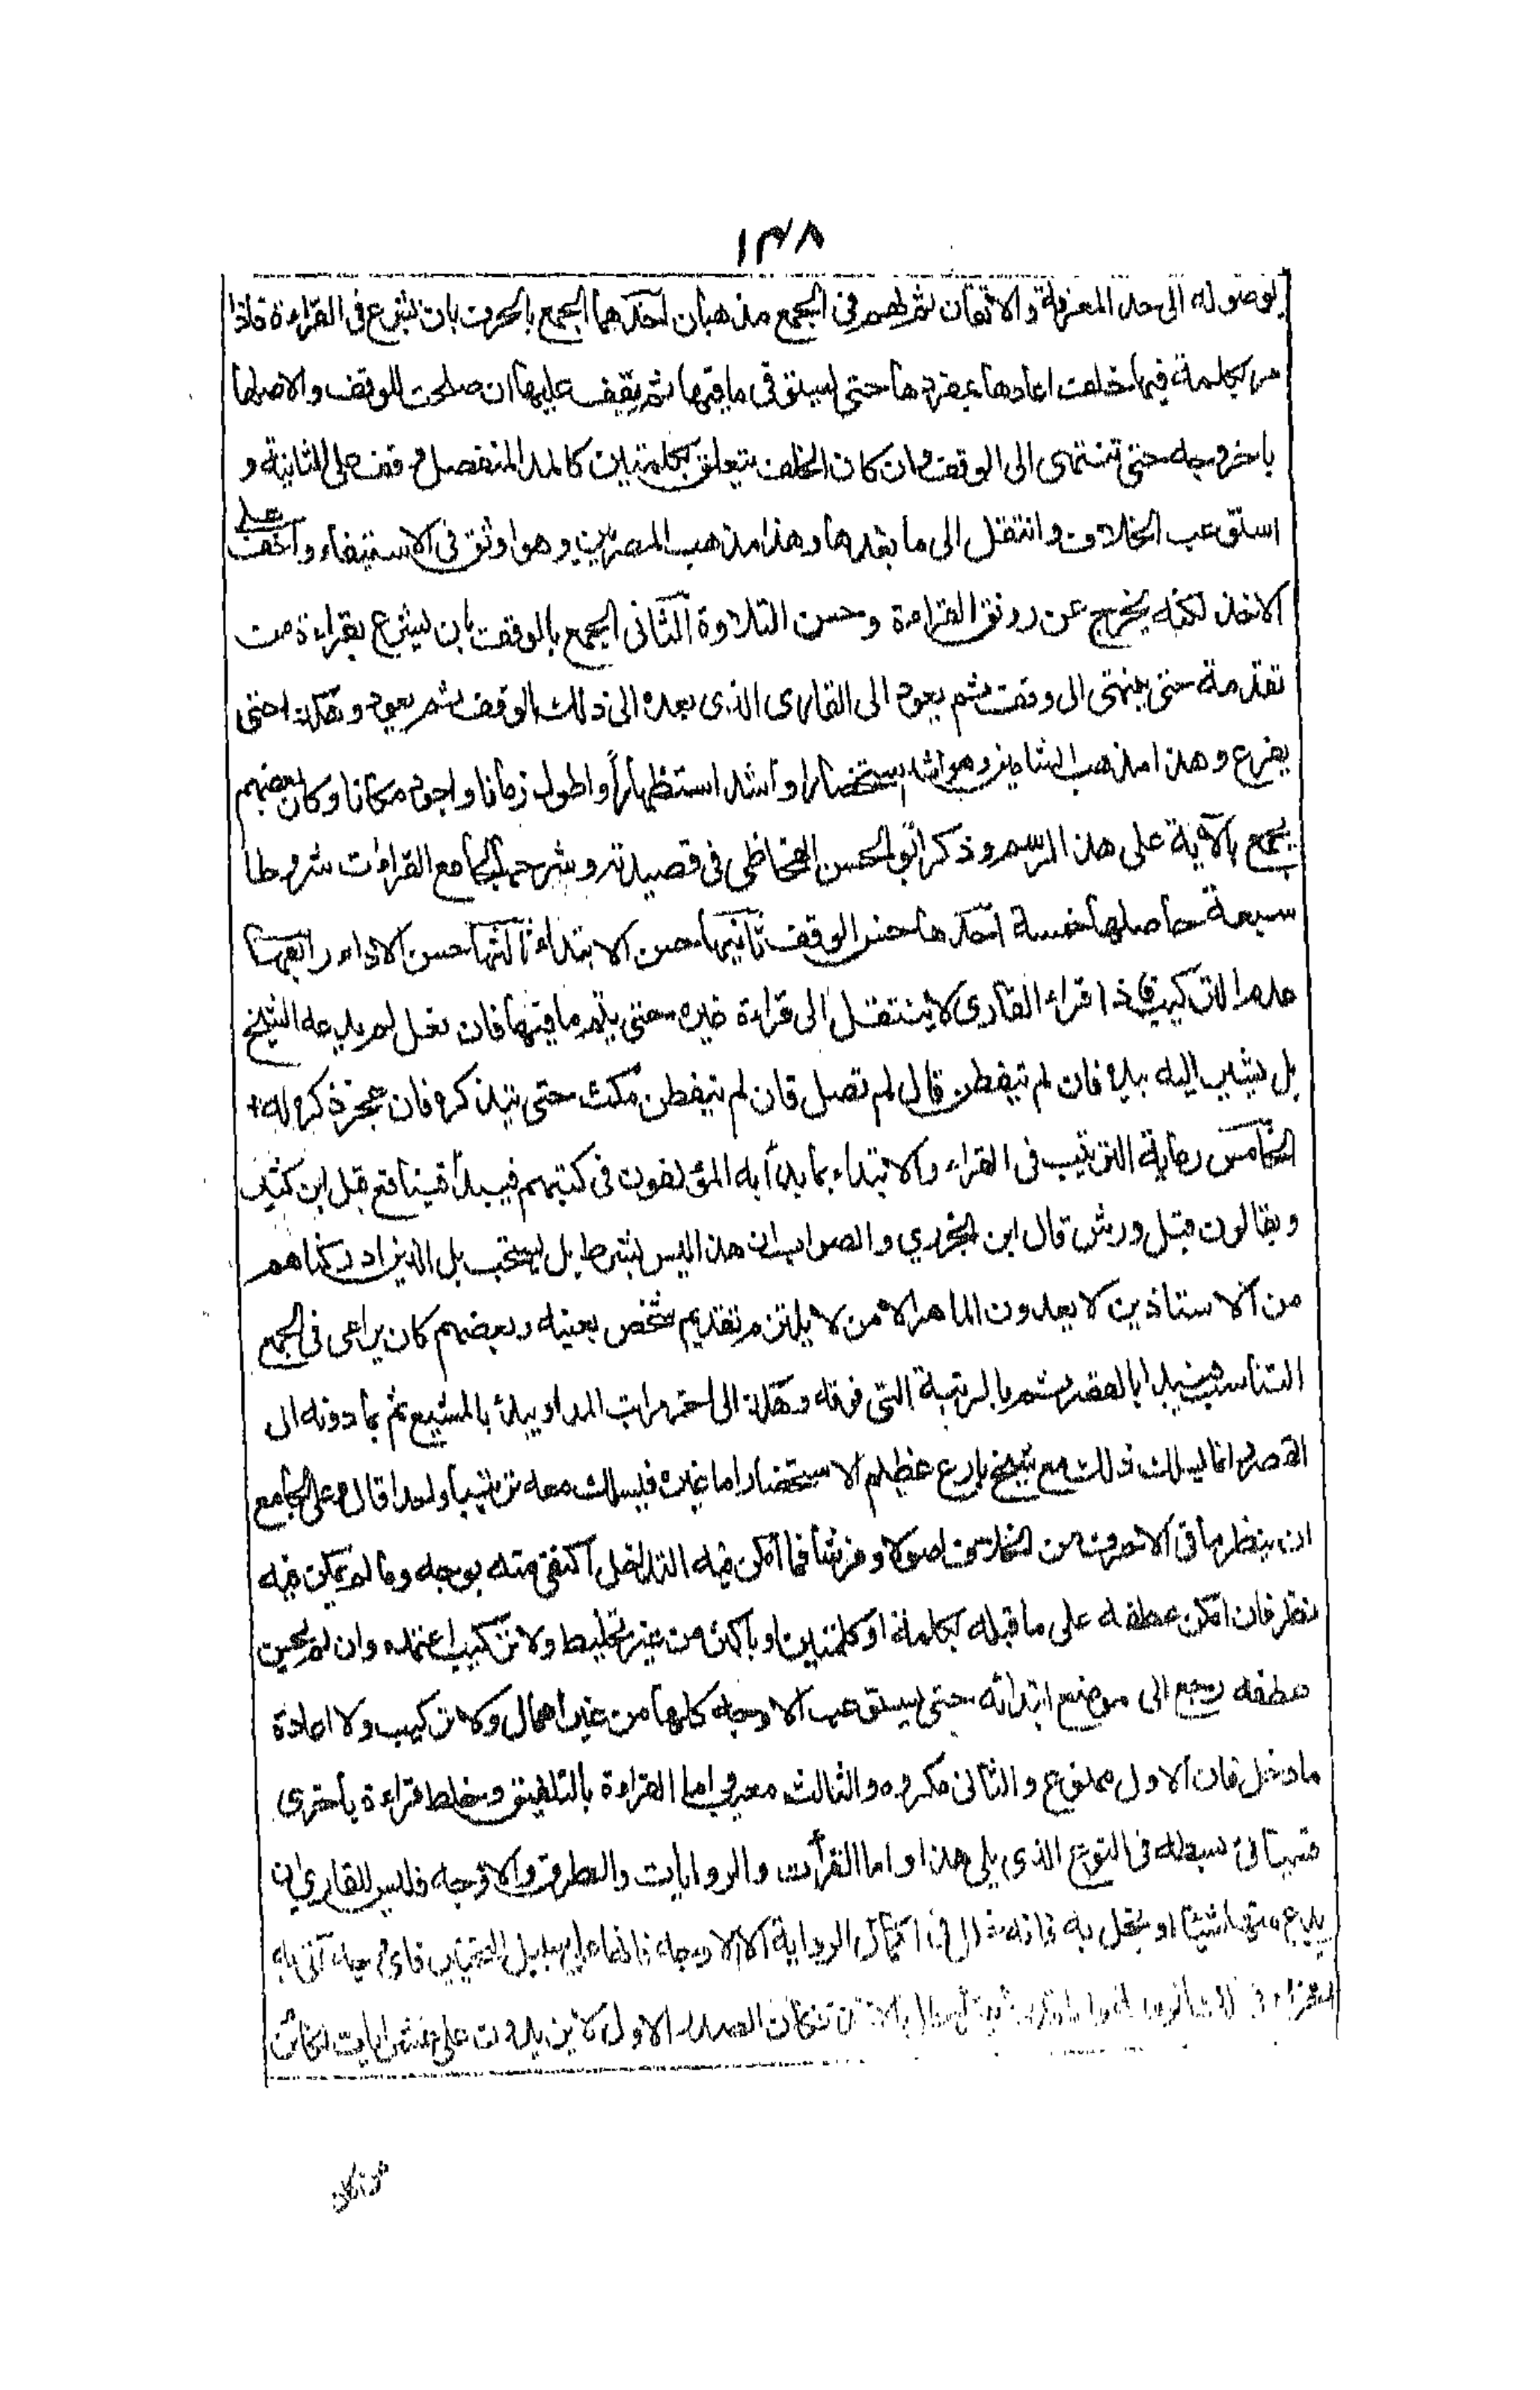 ١٣٨
لوصوله الى حد المعرفة والاتقان ثم لهم فى الجمع مذهبان احدهما الجمع بالحرف بان يشرع فى القراءة فاذا
مر بكلمة فيها خلف اعادها بمفردها حتى يستوفى ما فيها ثم يقف عليها ان صلحت للوقف والا وصلها
باخر وجه حتى تنتهى الى الوقف وان كان الخلف يتعلق بكلمتين كالمد المنفصل وقف على الثانية و
استوعب الخلاف وانتقل الى ما بعدها وهذا مذهب المصريين وهو اوثق فى الاستيفاء واخف على
الاخذ لكنه يخرج عن رونق القراءة وحسن التلاوة الثانى الجمع بالوقف بان يشرع بقراءة من
تقدمة حتى ينتهى الى وقف ثم يعود الى القارى الذى بعده الى ذلك الوقف ثم يعود وهكذا حتى
يفرغ وهذا مذهب الشاميين وهو اشد استحضارا واشد استظهارا واطول زمانا واجود مكانا وكان بعضهم
يجمع بالآية على هذا الرسم وذكر ابو الحسن القيجاطى فى قصيدته وشرحها لجامع القراءت شروطا
سبعة حاصلها خمسة احدها حسن الوقف ثانيها حسن الابتداء ثالثها حسن الاداء رابعها
عدم التركيب فاذا قراء القارى لا ينتقل الى قراءة غيره حتى يتم ما فيها فان فعل لم يدعه الشيخ
بل يشير اليه بيده فان لم يتفطن قال لم تصل فان لم يتفطن مكث حتى يتذكر فان عجز ذكر له
الخامس رعاية الترتيب فى القراءة والابتداء بما بدأ به المؤلفون فى كتبهم فيبدأ بنافع قبل ابن كثير
وبقالون قبل ورش قال ابن الجزري والصواب ان هذا ليس بشرط بل يستحب بل الذين ادركناهم
من الاستاذين لا يعدون الماهر الا من لا يلتزم تقديم شخص بعينه وبعضهم كان يراعى فى الجمع
التناسب فيبدا بالقصر ثم بالرتبة التى فوقه وهكذا الى اخر مراتب المد او يبدأ بالمشبع ثم بما دونه الى
القصر وانما يسلك ذلك مع شيخ بارع عظيم الاستحضار اما غيره فيسلك معه ترتيبا واحدا قال وعلى الجامع
ان ينظر ما فى الاحرف من الخلاف اصولا وفرشا فما امكن فيه التداخل اكتفى منه بوجه وما لم يمكن فيه
نظر فان امكن عطفه على ما قبله بكلمة او كلمتين او باكثر من غير تخليط ولا تركيب اعتمده وان لم يحسن
عطفه رجع الى موضع ابتدائه حتى يستوعب الاوجه كلها من غير اهمال ولا تركيب ولا اعادة
ما دخل فان الاول ممنوع والثانى مكروه والثالث معيب واما القراءة بالتلفيق وخلط قراءة باخرى
فسيأتى بسطه فى النوع الذى يلى هذا واما القرأت والروايات والطرق والاوجه فليس للقارى ان
يدع منها شيئا او يخل به فانه خلل فى اكمال الرواية الا الاوجه فانها على سبيل التخيير فاى وجه اتى به
الصدر الاول لا يزيدون على عشر ايات لكائن